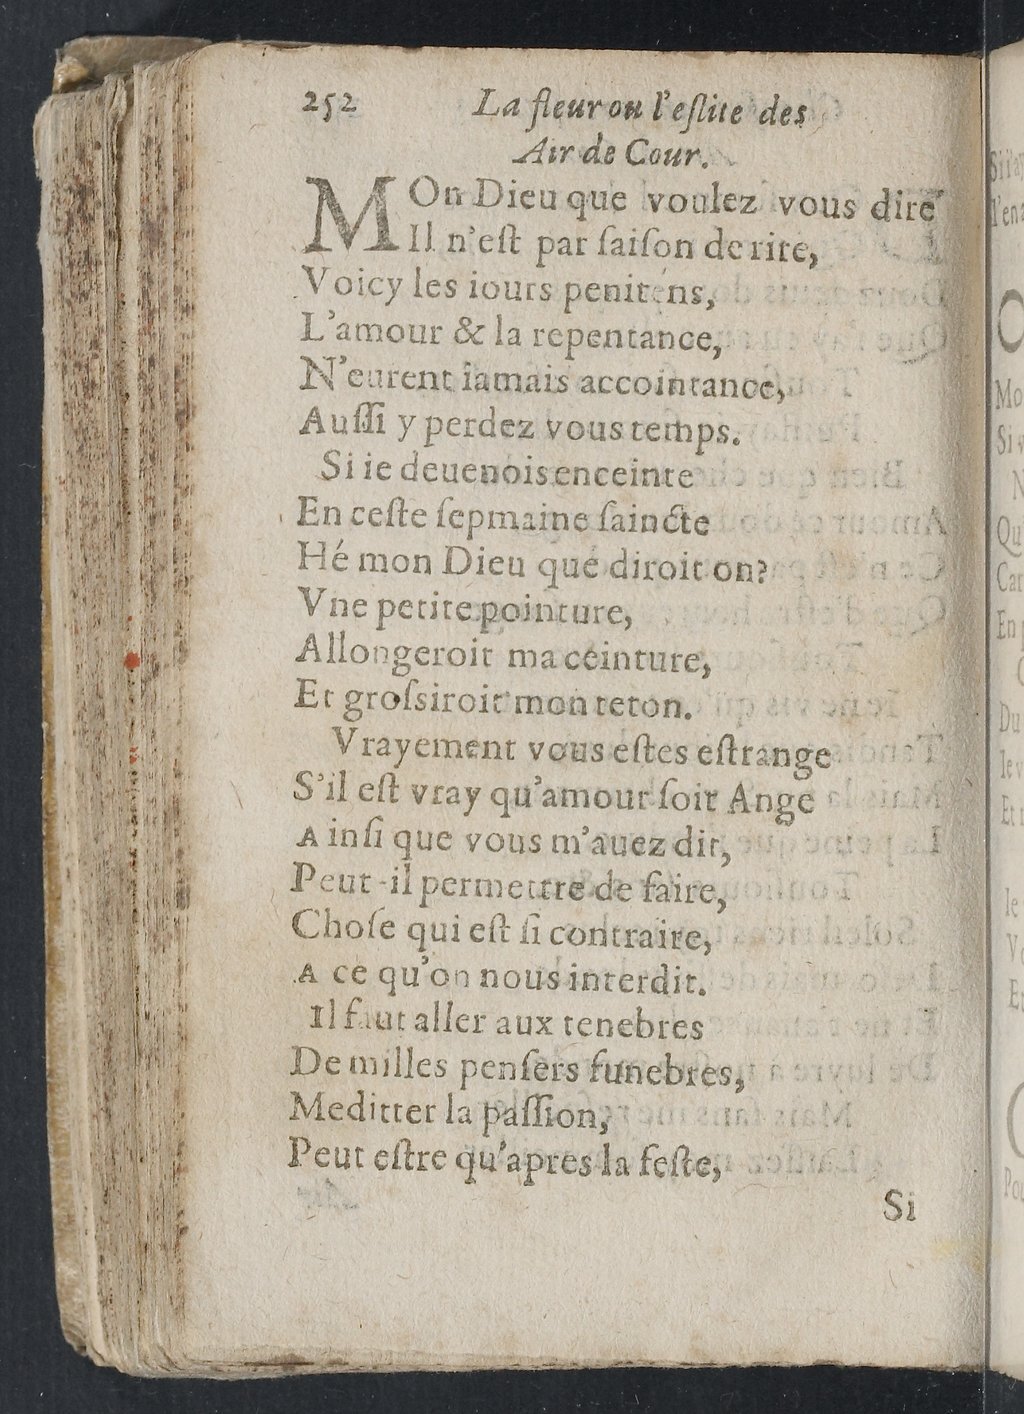 252 La fleur ou l'eſlite des
Air de Cour.
MOn Dieu que voulez vous dire
Il n'eſt par ſaiſon de rire,
Voicy les iours penitens,
L'amour & la repentance,
N'eurent iamais accointance,
Auſſi y perdez vous temps.
Si ie deuenois enceinte
En ceſte ſepmaine ſaincte
Hé mon Dieu que diroit on?
Vne petite pointure,
Allongeroit ma ceinture,
Et groſsiroit mon teton.
Vrayement vous eſtes eſtrange
S'il eſt vray qu'amour ſoit Ange
Ainſi que vous m'auez dit,
Peut-il permettre de faire,
Choſe qui eſt ſi contraire,
A ce qu'on nous interdit.
Il faut aller aux tenebres
De milles penſers funebres,
Meditter la paſſion,
Peut eſtre qu'apres la feſte,
Si